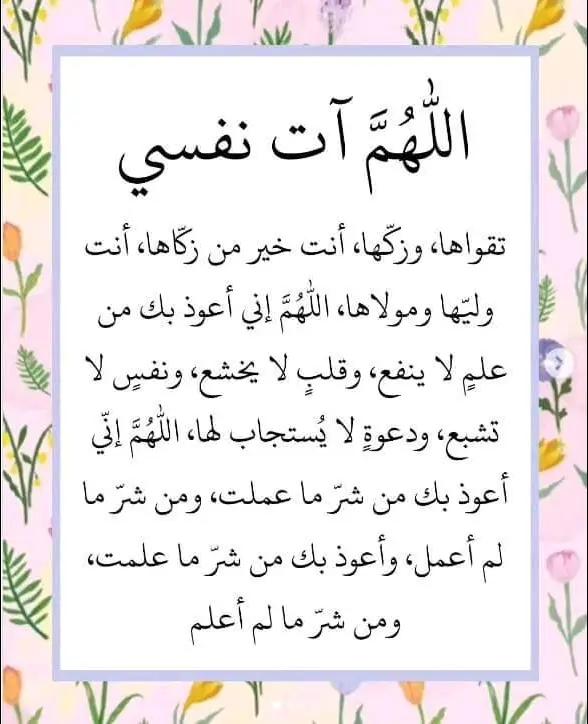 اللّٰهُمَّ آت نفسي
تقواها، وزكّها، أنت خير من زكّاها، أنت
وليّها ومولاها، اللّٰهُمَّ إني أعوذ بك من
علمٍ لا ينفع، وقلبٍ لا يخشع، ونفسٍ لا
تشبع، ودعوةٍ لا يُستجاب لها، اللّٰهُمَّ إنّي
أعوذ بك من شرّ ما عملت، ومن شرّ ما
لم أعمل، وأعوذ بك من شرّ ما علمت،
ومن شرّ ما لم أعلم